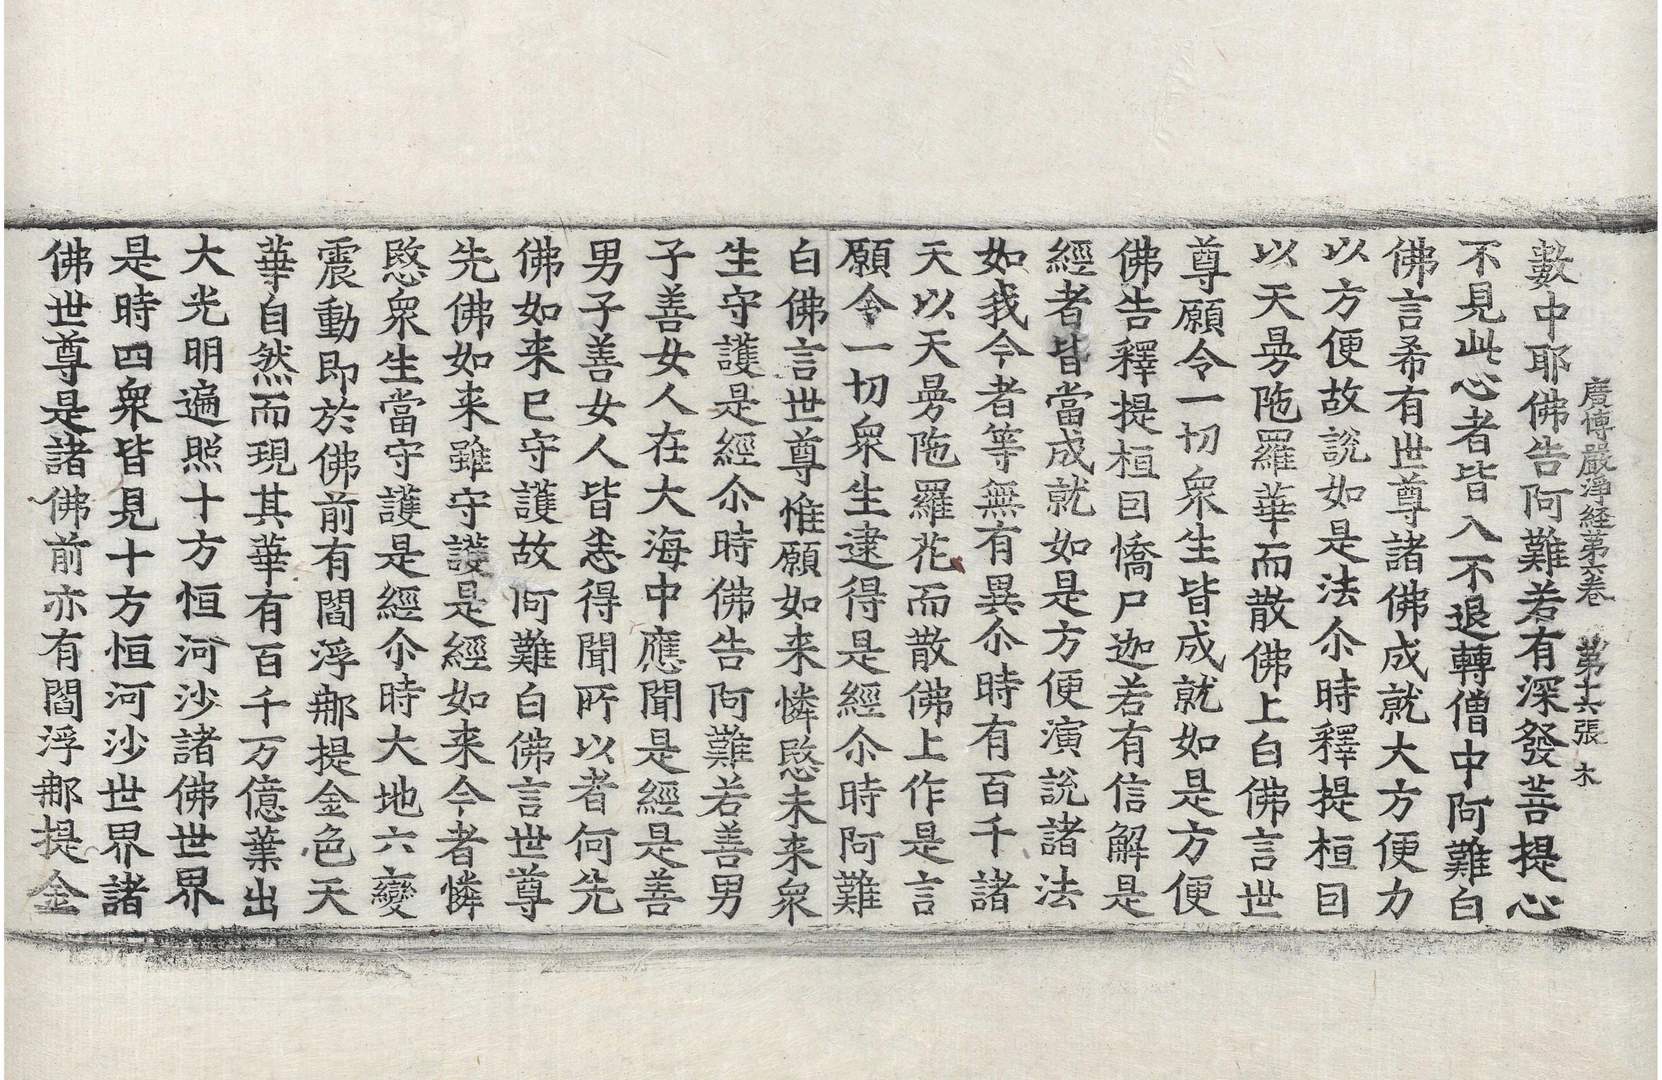 廣博嚴淨経第六卷　第十六張　木
數中耶佛告阿難若有深發菩提心
不見此心者皆入不退轉僧中阿難白
佛言希有世尊諸佛成就大方便力
以方便故說如是法尒時釋提桓因
以天曼陁羅華而散佛上白佛言世
尊願令一切衆生皆成就如是方便
佛告釋提桓因憍尸迦若有信解是
經者皆當成就如是方便演說諸法
如我今者等無有異尒時有百千諸
天以天曼陁羅花而散佛上作是言
願令一切衆生逮得是經尒時阿難
白佛言世尊惟願如来憐愍未来衆
生守護是經尒時佛告阿難若善男
子善女人在大海中應聞是經是善
男子善女人皆悉得聞所以者何先
佛如来已守護故阿難白佛言世尊
先佛如来雖守護是經如来今者憐
愍衆生當守護是經尒時大地六變
震動即於佛前有閻浮那提金色天
華自然而現其華有百千万億葉出
大光明遍照十方恒河沙諸佛世界
是時四衆皆見十方恒河沙世界諸
佛世尊是諸佛前亦有閻浮那提金